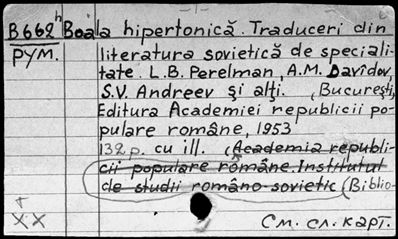 -1-
B662h Boala hipertonică. Traduceri din
рум. literatura sovietică de speciali-
tate. L.B. Perelman, A.M. Davîdov,
S.V. Andreev şi alţi. București,
Editura Academiei republicii po-
pulare române, 1953
132 p. cu ill. (Academia republi-
cii populare române. Institutul
de studii romîno-sovietic (Biblio-
XX См. сл. карт.